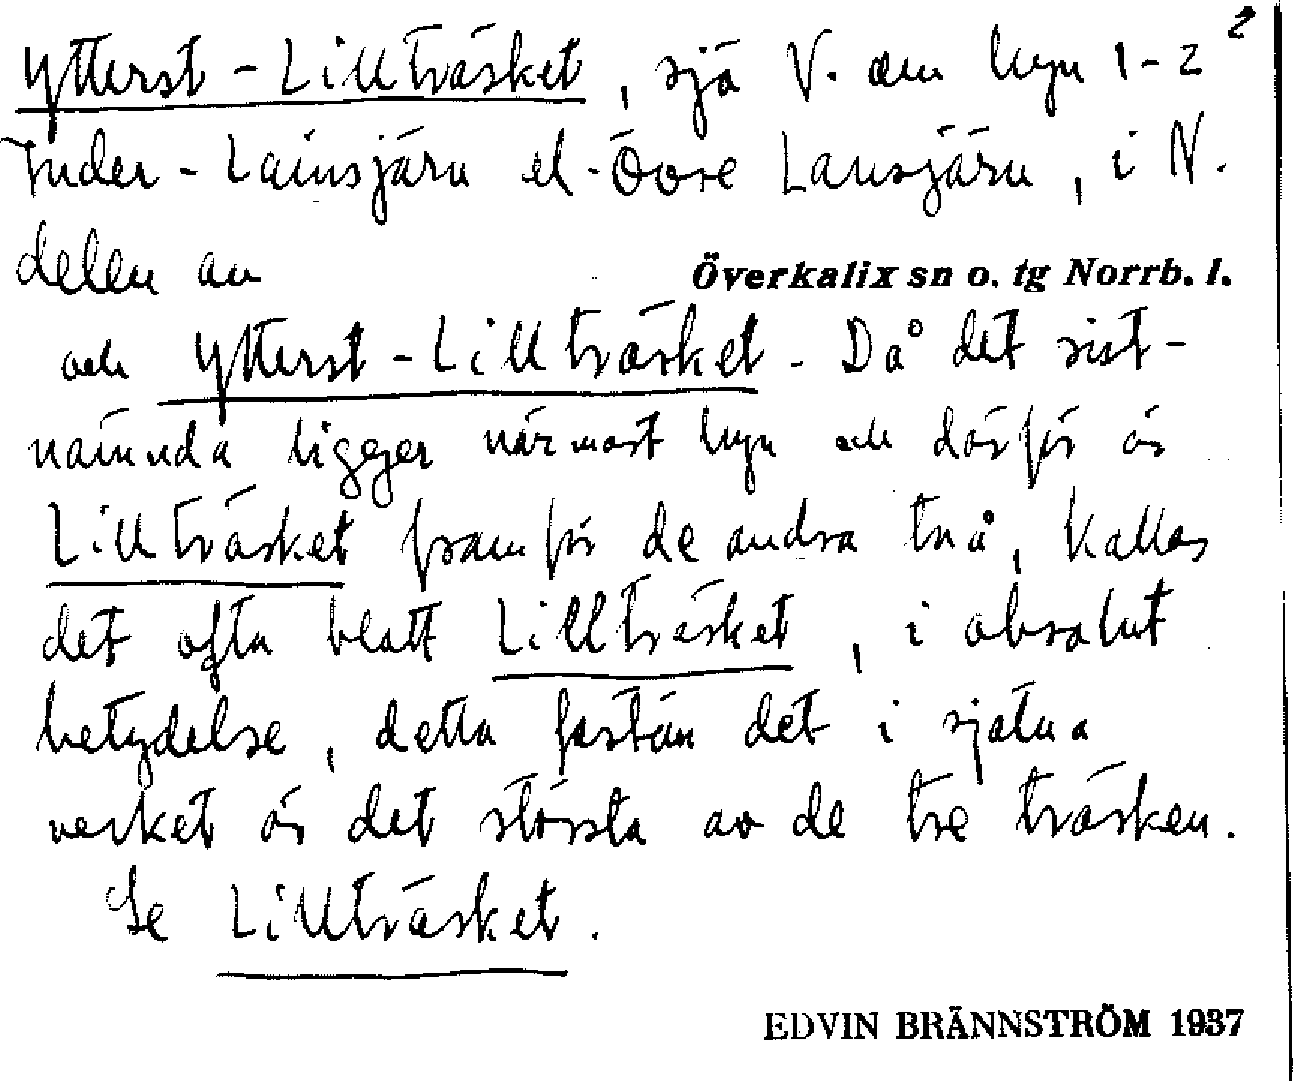 2
Ytterst-Lillträsket, sjö V. om byn 1-2
Inder-Lainsjärv el. Övre Lansjärv, i N.
delen av Överkalix sn o. tg Norrb. l.
och Ytterst-Lillträsket. Då det sist-
nämnda ligger närmast byn och därför är
Lillträsket framför de andra två, kallas
det ofta blott Lillträsket, i absolut
betydelse, detta fastän det i själva
verket är det största av de tre träsken.
Se Lillträsket.
EDVIN BRÄNNSTRÖM 1937